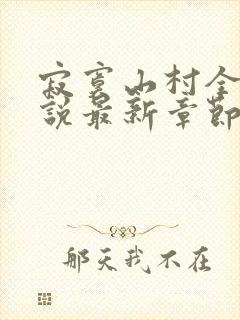 寂寞山村全
說最新章節
那天我不在